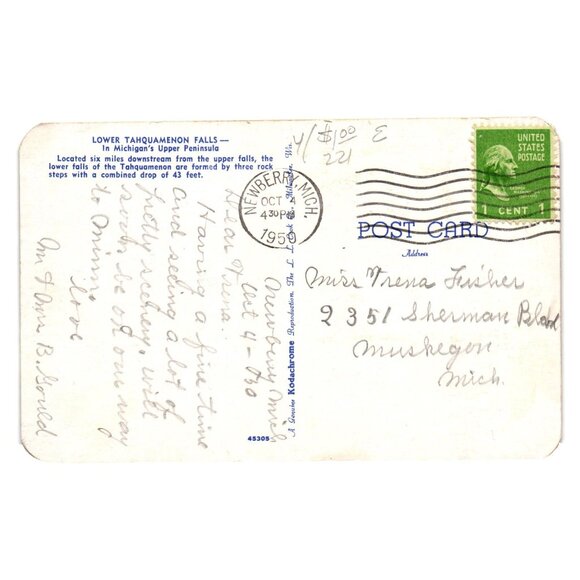 LOWER TAHQUAMENON FALLS—
In Michigan's Upper Peninsula
Located six miles downstream from the upper falls, the
lower falls of the Tahquamenon are formed by three rock
steps with a combined drop of 43 feet.
Newberry Mich
Oct 4 - 
Dear Vrena:
Having a fine time
and seeing a lot of
pretty scenery, will
soon be on our way
to Minn.
love
Mr & Mrs B. Gould
45305
A Genuine Kodachrome Reproduction The L. L. Cook Co., Milwaukee, Wis.
4/ $1.00 E
221
NEWBERRY, MICH.
OCT 4
430PM
1950
UNITED
STATES
POSTAGE
1 CENT 1
POST CARD
Address
Miss Vrena Fisher
2351 Sherman Blvd
Muskegon
Mich.